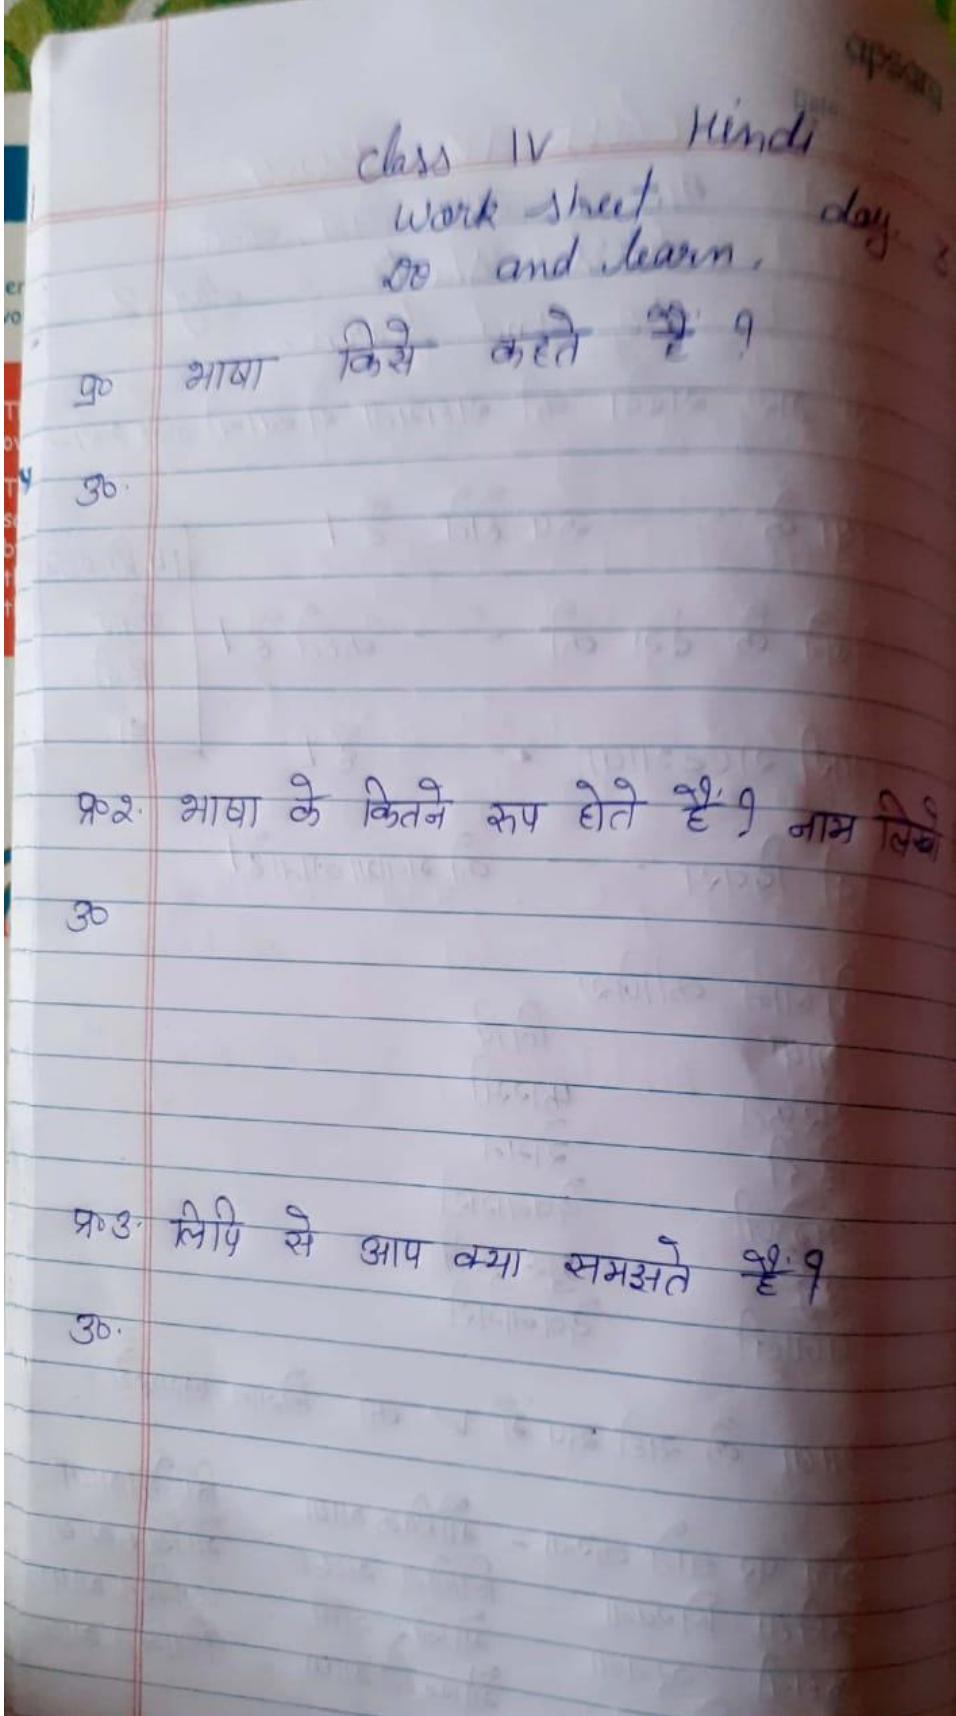 apsara
Class IV Hindi
Work sheet day.
DO and learn.
प्र० भाषा किसे कहते हैं ?
उ०.
प्र०२. भाषा के कितने रुप होते हैं ? नाम लिखे
उ०
प्र०३. लिपि से आप क्या समझते हैं ?
उ०.